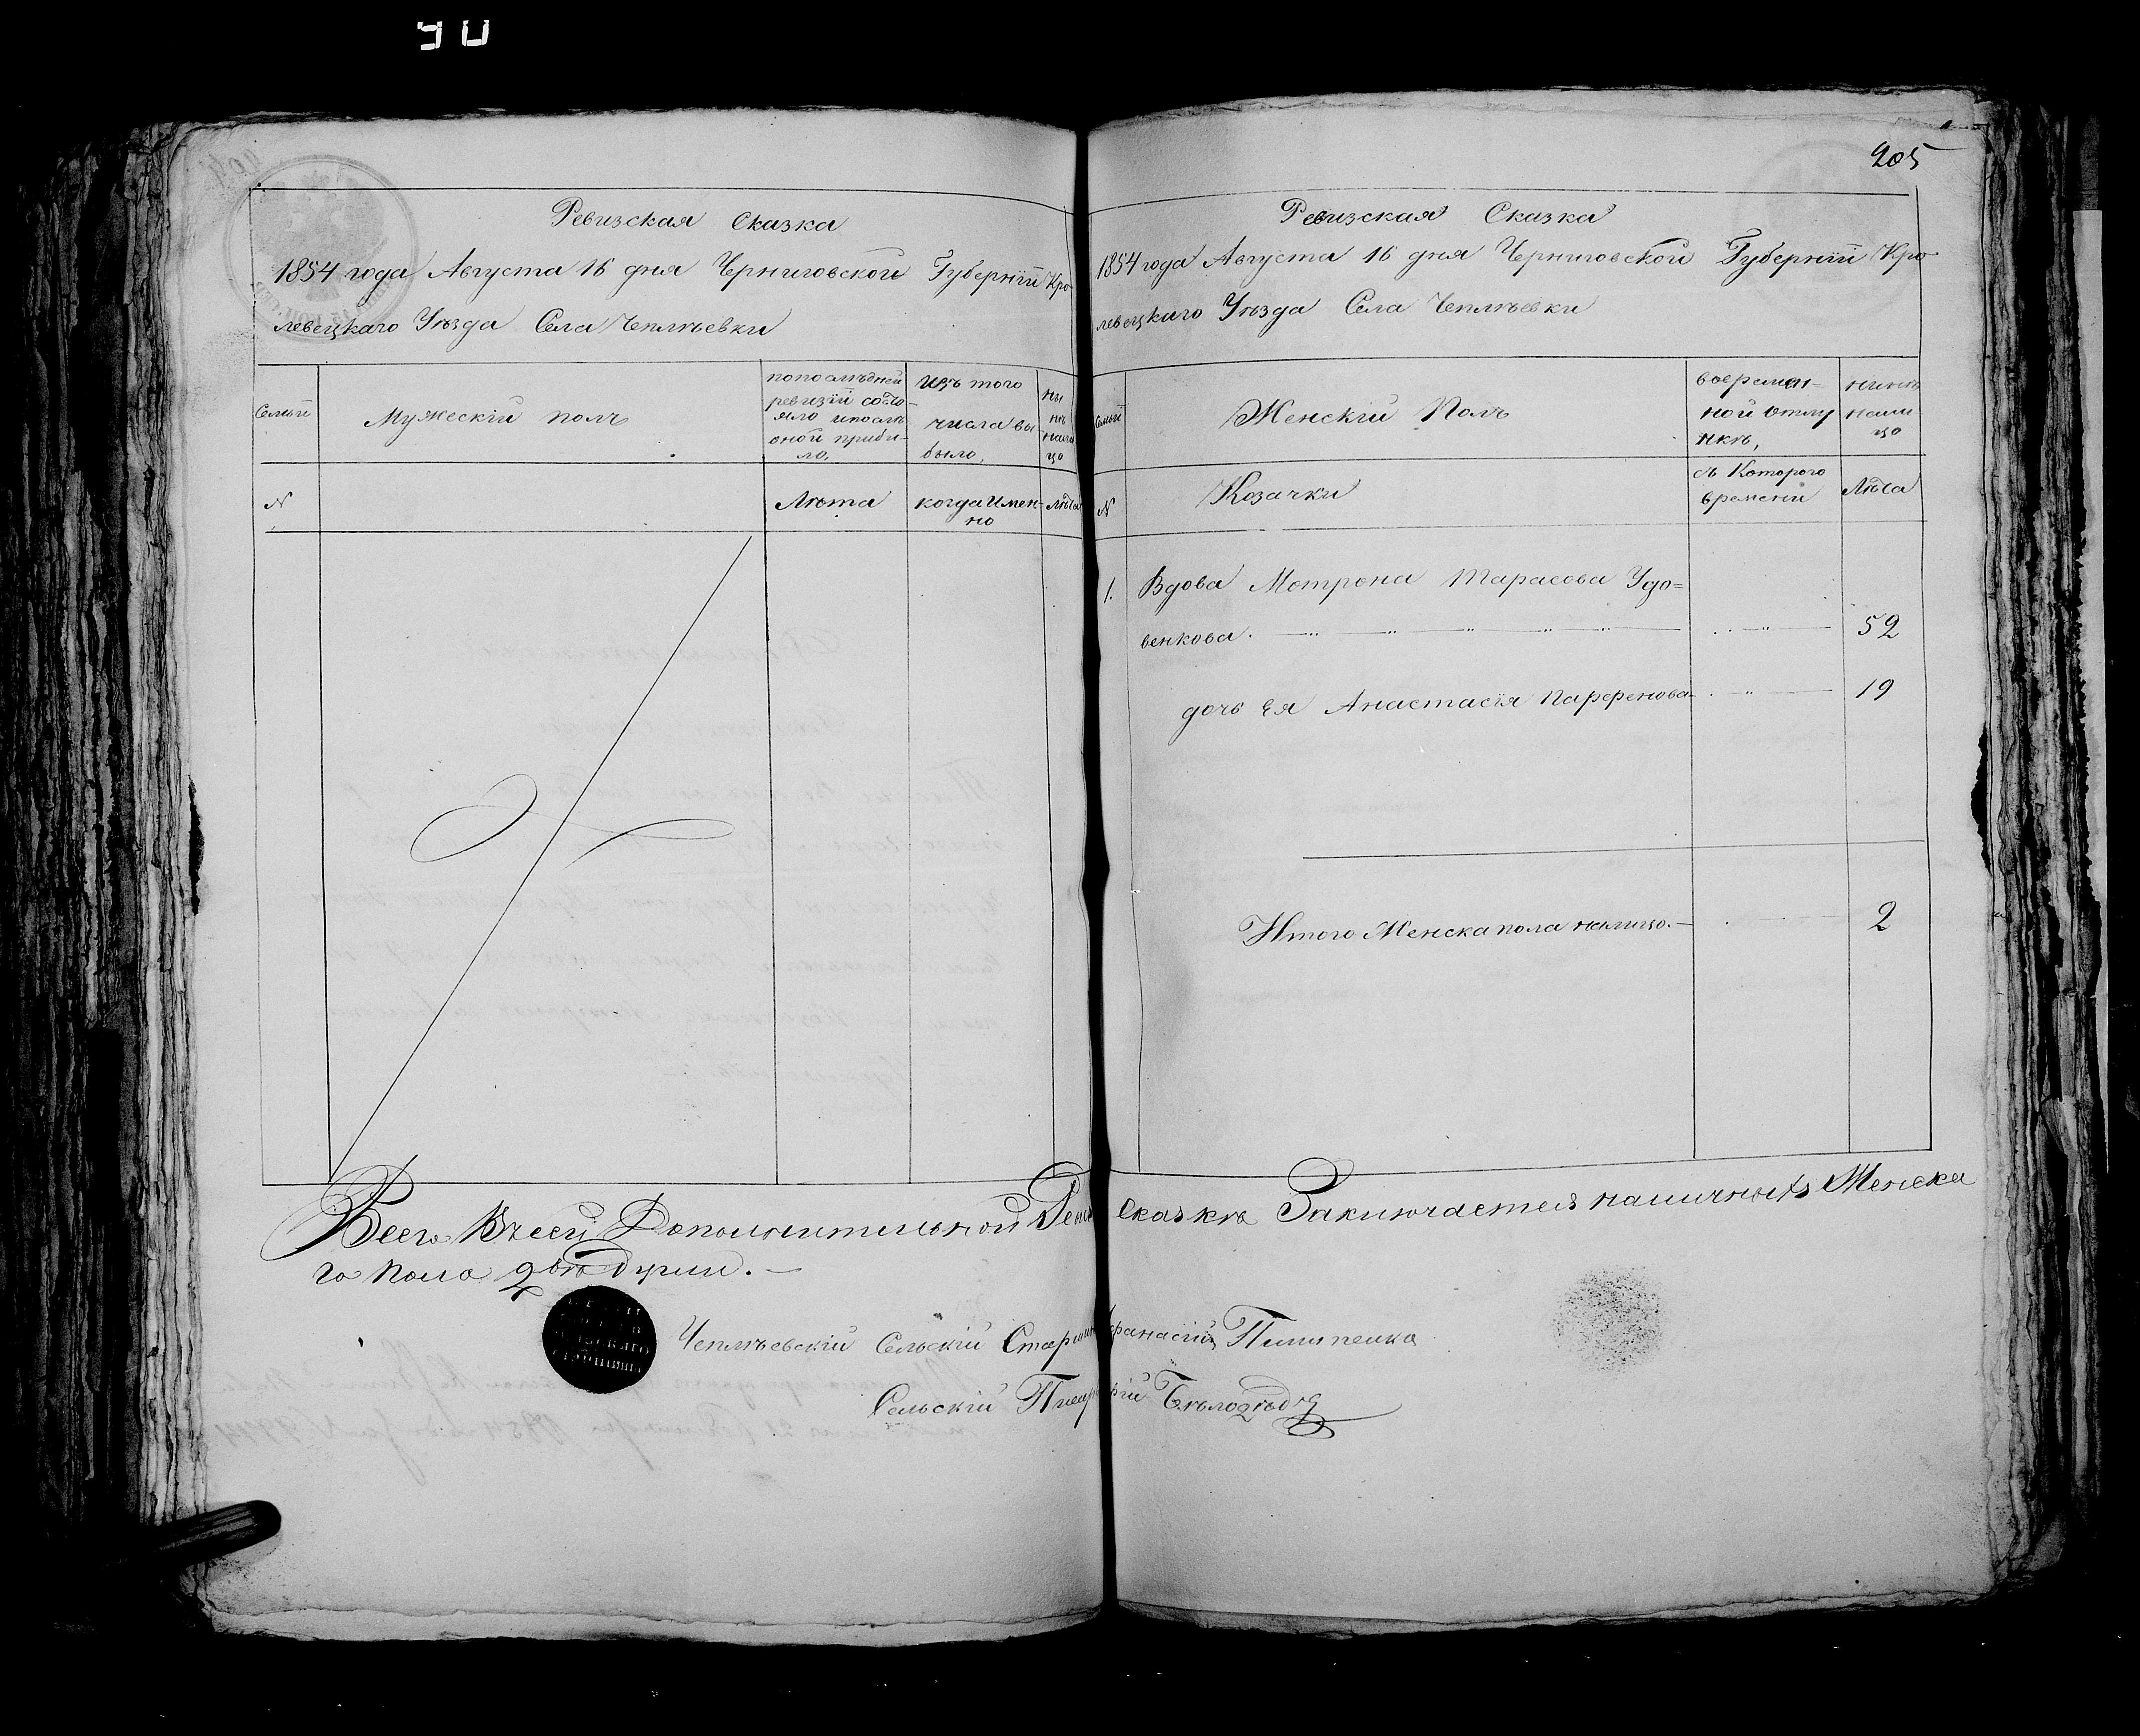 205
Ревизская Сказка
1854 года Августа 16 дня Черниговской Губерніи Кро-
левецкаго Уѣзда Села Чеплѣевки
Семьи
Мужескій полъ
по послѣдней
ревизіи состо-
яло и послѣ
оной прибы-
ло,
изъ того
числа вы-
было,
ны
нѣ
нали
цо
N
Лѣта
когда имен-
но
Лѣта
Ревизская Сказка
1854 года Августа 16 дня Черниговской Губерніи Кро-
левецкаго Уѣзда Села Чеплѣевки
Семьи
Женскій Полъ
во времян-
ной отлу
чкѣ,
нынѣ
нали
цо
N
Козачки
съ Которого
времени
Лѣта
1. Вдова Мотрона Тарасова Удо=
венкова. 52
дочь Ея Анастасія Парфенова 19
Итого Женска пола налицо.— 2
Всего Въ сей Дополнительной Рев Сказкѣ Заключается наличныхъ Женска
го пола 2 Души.—
Чеплѣевскій Сельскій Старшин Афанасій Пилипенко
Сельскій Писарь